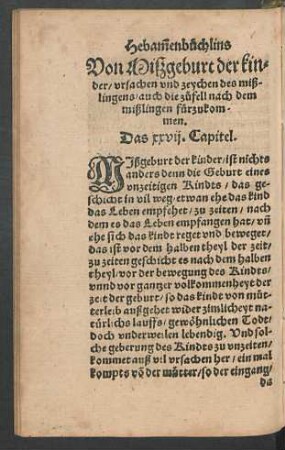 Hebam̃enbüchlins
Von Mißgeburt der kin-
der/ vrsachen vnd zeychen des miß-
lingens/ auch die züfell nach dem
mißlingen fürzukom-
men.
Das xxvij. Capitel.
Mißgeburt der kinder/ ist nichts
anders denn die Geburt eines
vnzeitigen Kindts/ das ge-
schicht in vil weg/ etwan ehe das kind
das Leben empfehet/ zu zeiten/ nach
dem es das Leben empfangen hat/ vñ
ehe sich das kindt reget vnd beweget/
das ist vor dem halben theyl der zeit/
zu zeiten geschicht es nach dem halben
theyl/ vor der bewegung des Kindts/
vnnd vor gantzer volkommenheyt der
zeit der geburt/ so das kindt von müt-
terleib außgehet wider zimlicheyt na-
türlichs lauffs/ gewöhnlichen Todt/
doch vnderweilen lebendig. Vnd sol-
che geberung des Kindts zu vnzeiten/
kommet auß vil vrsachen her/ ein mal
kompts võ der mütter/ so der eingang/
da